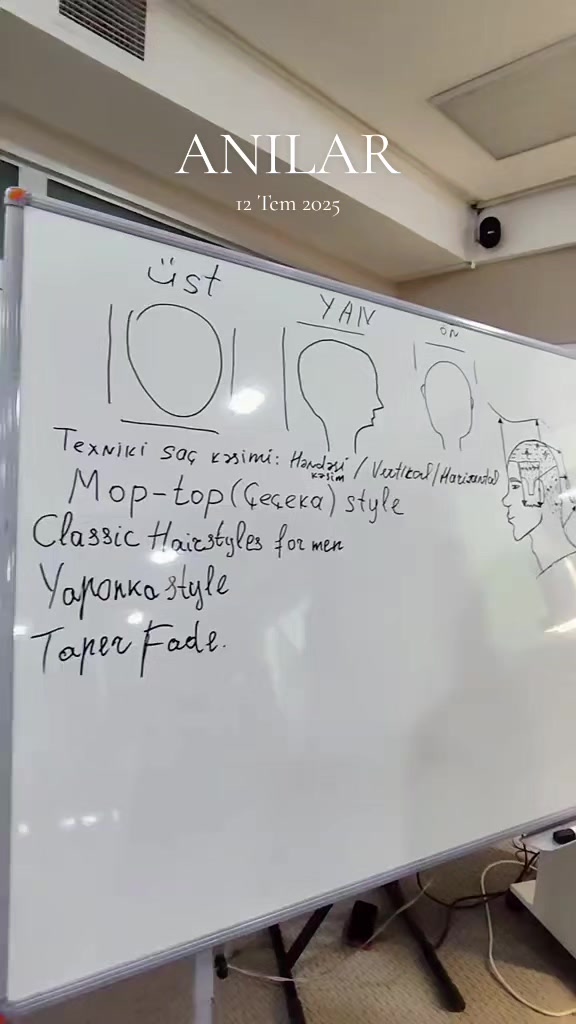 ANILAR
12 Tem 2025
üst
YAN
ÖN
Texniki saç kəsimi: Həndəsi kəsim / Vertikal / Harizontal
Mop-top (Çeçeка) style
Classic Hairstyles for men
Yaponka style
Taper Fade.